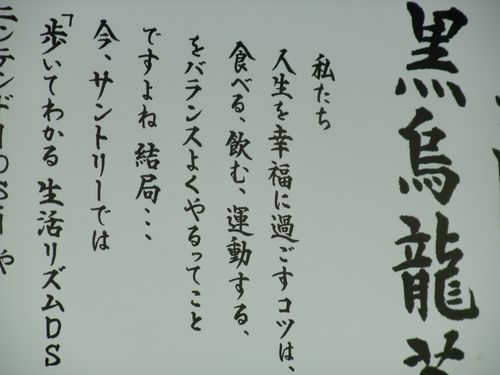 黒烏龍茶
私たち
人生を幸福に過ごすコツは、
食べる、飲む、運動する、
をバランスよくやるってこと
ですよね 結局…
今、サントリーでは
「歩いてわかる 生活リズムDS
ニンテンドーDSiや